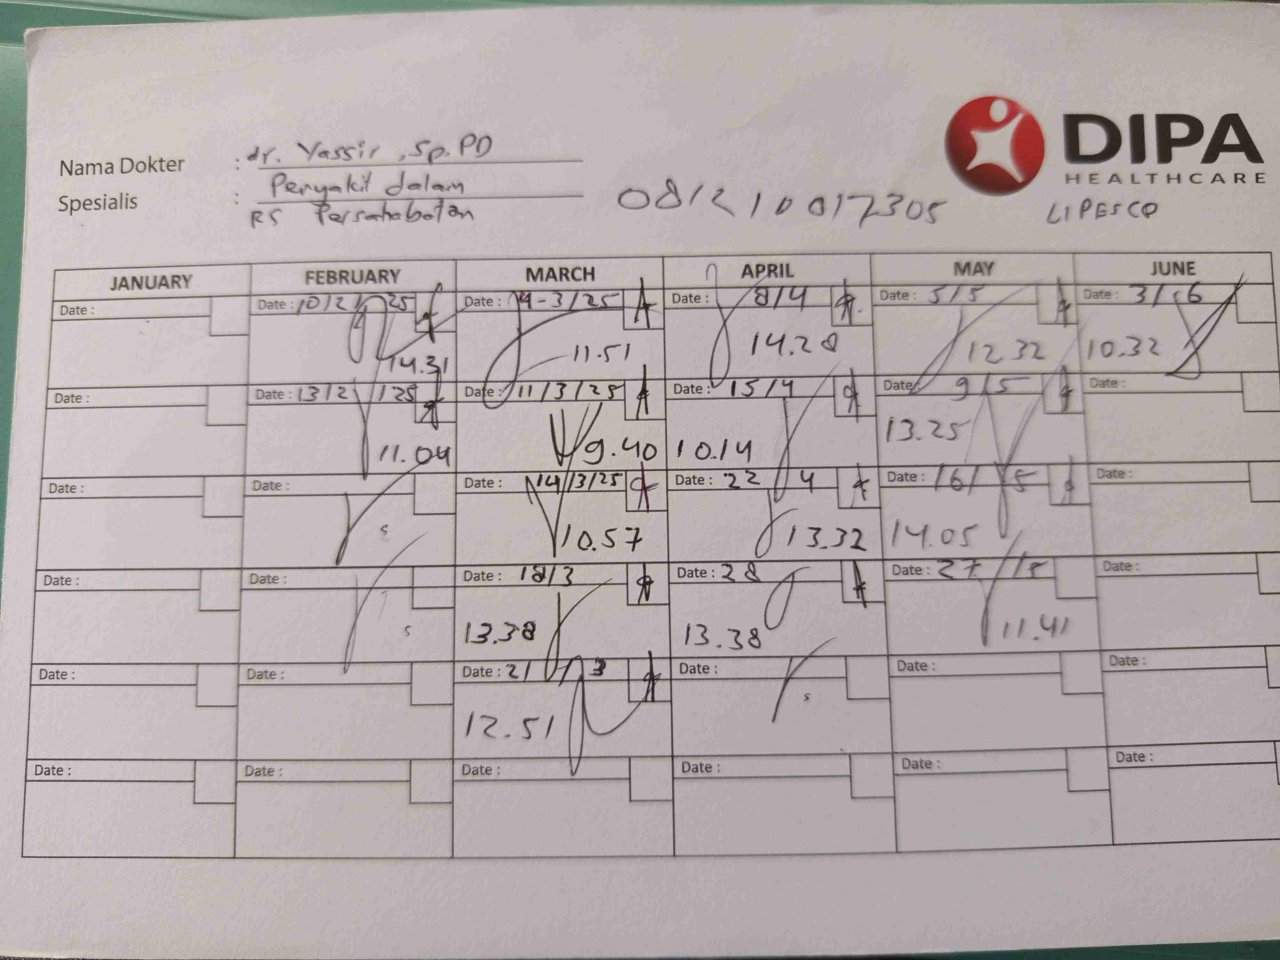 DIPA
HEALTHCARE
Nama Dokter : dr. Yassir, Sp.PD
Spesialis : Penyakit dalam
RS Persahabatan
081210017305
LIPESCO
JANUARY FEBRUARY MARCH APRIL MAY JUNE
Date : Date : 10/2/25 Date : 4-3/25 Date : 8/4 Date : 5/5 Date : 3/6
14.31 11.51 14.28 12.32 10.32
Date : Date : 13/2/25 Date : 11/3/25 Date : 15/4 Date : 9/5 Date :
11.04 9.40 10.14 13.25
Date : Date : Date : 14/3/25 Date : 22 4 Date : 16/5 Date :
s 10.57 13.32 14.05
Date : Date : Date : 18/3 Date : 28 Date : 27/5 Date :
s 13.38 13.38 11.41
Date : Date : Date : 21/3 Date : Date : Date :
12.51 s
Date : Date : Date : Date : Date : Date :